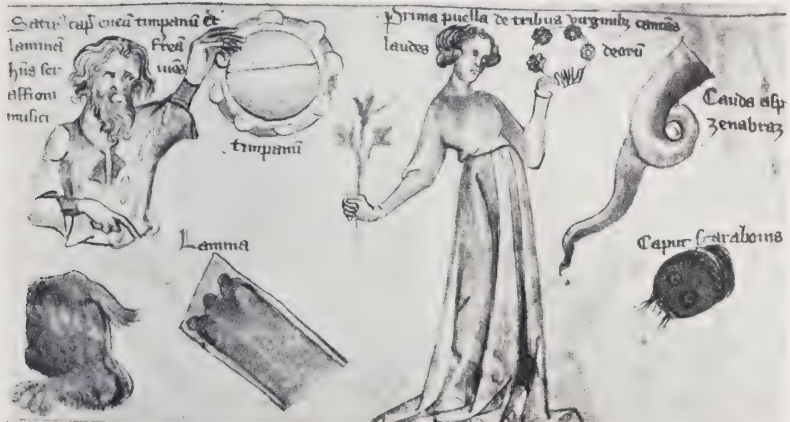 Satur' cap' eneū timpanū et
laminā frea
hñs ser uiōs
assioni
musici
timpanū
Prima puella de tribus virginibz cantās
laudes deorū
Cauda asp
zenabraz
Lamina
Caput scaraboius